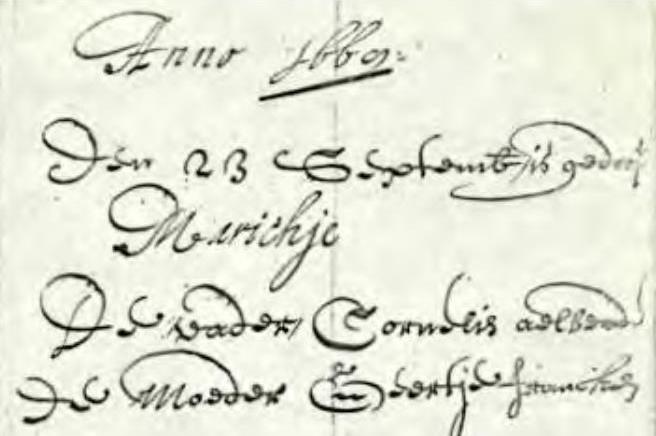 Anno 1669
Den 23 Septemb, is gedoopt
Marichje
De vader, Cornelis
De Moeder Geertje